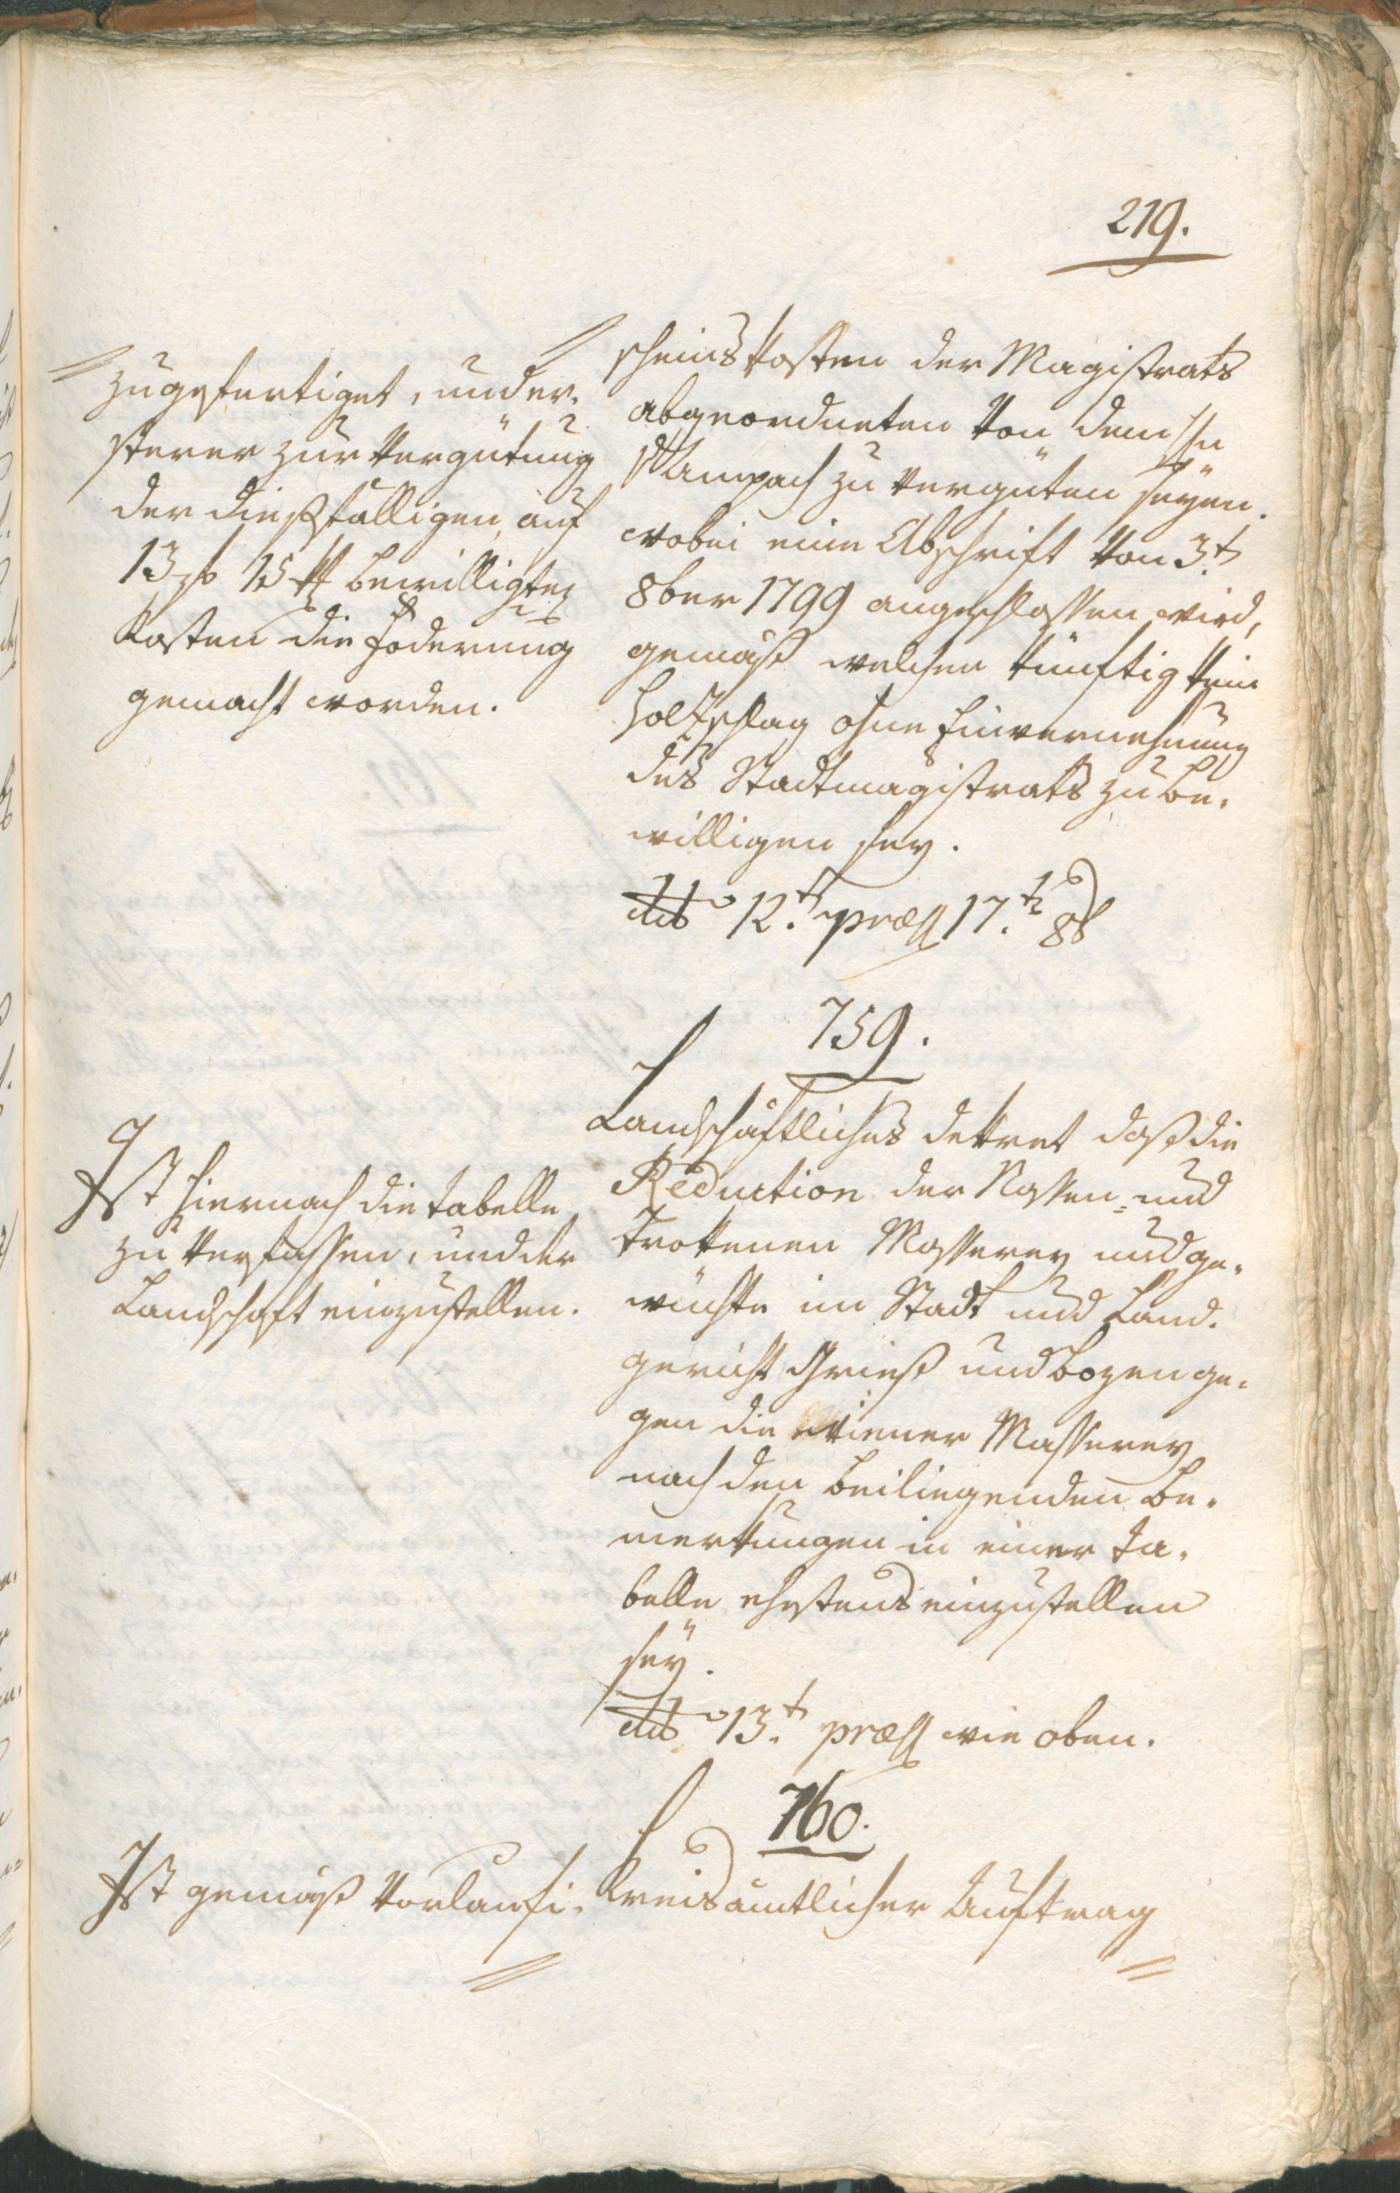 219.
zugefertiget, und er,
sterer zur Vergütung
der dießfälligen, auf
13 f 15 x bewilligten
Kosten die Foderung
gemacht worden.
scheinskosten der Magistrats
abgeordneten von dem Hn
v Stampach zu vergüten seyen.
wobei eine Abschrift von 3.t
8ber 1799 angeschlossen wird,
gemäß welcher künftig kein
Holzschlag ohne Einvernehmung
des Stadtmagistrats zu be,
willigen sey.
dto 12.t præs 17.t 8b
759.
Landschäftliches Dekret daß die
Reduction der Nassen= und
Trokenen Masserey und ge,
wichte im Stadt und Land,
gericht Grieß und Bozen ge,
gen die Wiener Masserey
nach den beiliegenden Be,
merkungen in einer Ta,
belle ehestens einzustellen
seÿ.
dto 13.t præs wie oben.
Ist hiernach die Tabelle
zu verfassen, und der
Landschaft einzustellen.
760.
Kreisämtlicher Auftrag
Ist gemäß vorläufi,